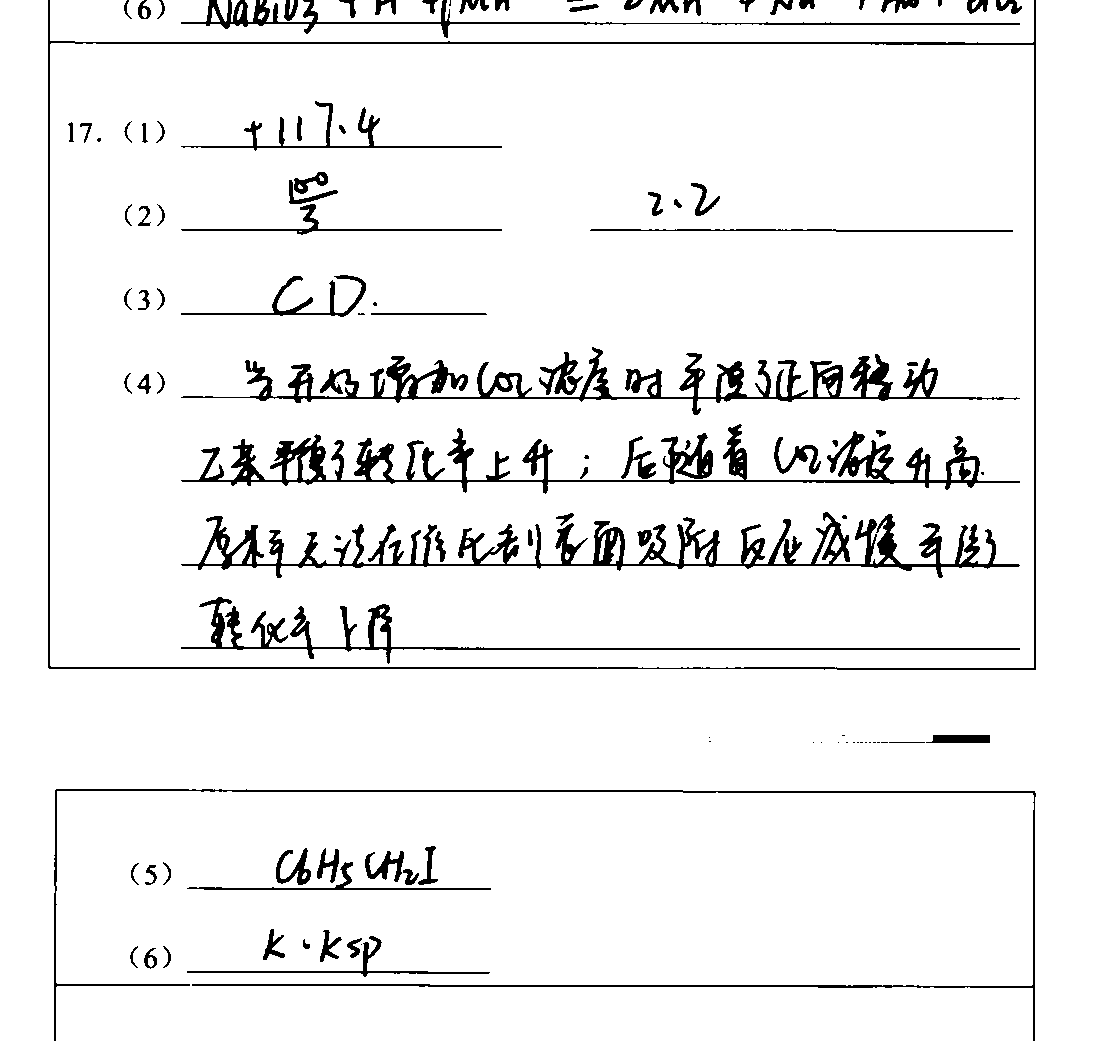 (6) NaBiO3 + H + Mn = Mn + Na +
17. (1) +117.4
(2) 100/3 2.2
(3) CD.
(4) 当开始增加CO2浓度时平衡正向移动
乙苯平衡转化率上升；后随着CO2浓度升高
原料无法在催化剂表面吸附反应减慢平衡
转化率下降
(5) C6H5CH2I
(6) K·Ksp